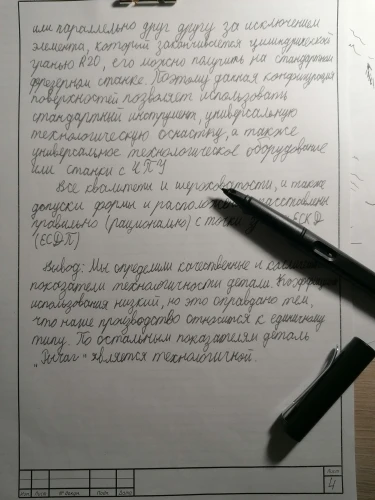 или параллельно друг другу за исключением
элемента, который заканчивается цилиндрической
гранью R20, его можно получить на стандартном
фрезерном станке. Поэтому данная конфигурация
поверхностей позволяет использовать
стандартный инструмент, универсальную
технологическую оснастку, а также
универсальное технологическое оборудование
или станки с ЧПУ
Все квалитеты и шероховатости, и также
допуски формы и расставлены
правильно (рационально) с ЕСКД
(ЕСДП)
Вывод: Мы определили качественные и
показатели технологичности детали.
использования низкий, но это оправдано тем,
что наше производство относится к единичному
типу. По остальным показателям деталь
„Рычаг“ является технологичной.
Лист
4
Изм. Лист № докум. Подп. Дата